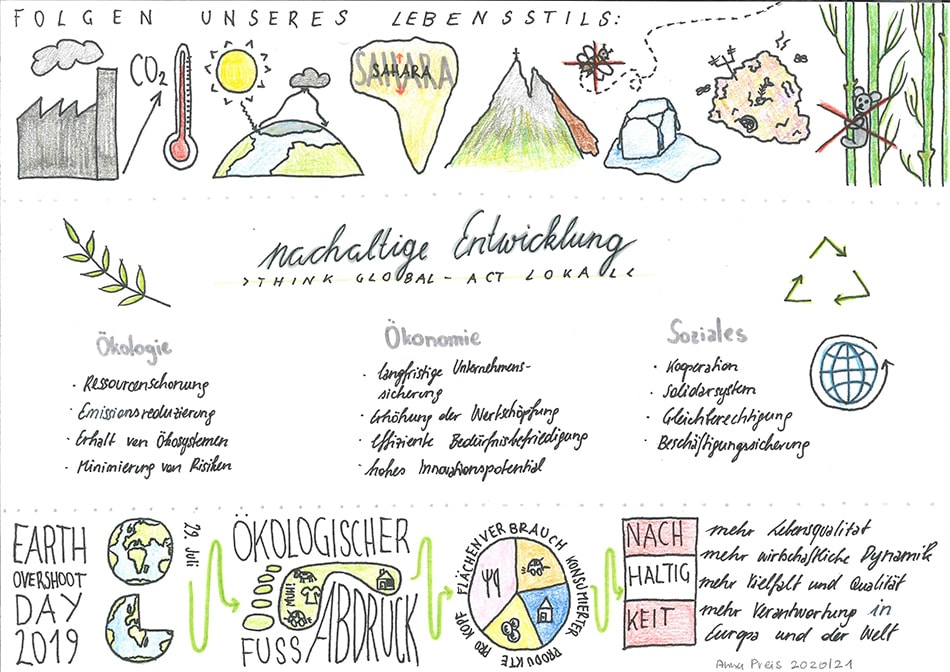 FOLGEN UNSERES LEBENSSTILS:
CO₂
SAHARA
SAHARA
nachaltige Entwicklung
>THINK GLOBAL - ACT LOKAL<
Ökologie
· Ressourcenschonung
· Emissionsreduzierung
· Erhalt von Ökosystemen
· Minimierung von Risiken
Ökonomie
· langfristige Unternehmens-
sicherung
· Erhöhung der Wertschöpfung
· effiziente Bedürfnisbefriedigung
· hohes Innovationspotential
Soziales
· Kooperation
· Solidarsystem
· Gleichberechtigung
· Beschäftigungssicherung
EARTH
OVERSHOOT
DAY
2019
29. Juli
ÖKOLOGISCHER
FUSSABDRUCK
FLÄCHENVERBRAUCH KONSUMIERTER
PRODUKTE PRO KOPF
NACH
HALTIG
KEIT
mehr Lebensqualität
mehr wirtschaftliche Dynamik
mehr Vielfalt und Qualität
mehr Verantwortung in
Europa und der Welt
Anna Preis 2020/21